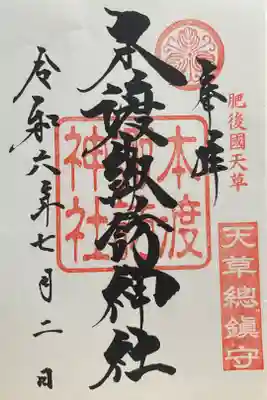 奉拝
肥後國天草
天草總鎮守
本渡諏訪神社
本渡
諏訪
神社
令和六年七月二日